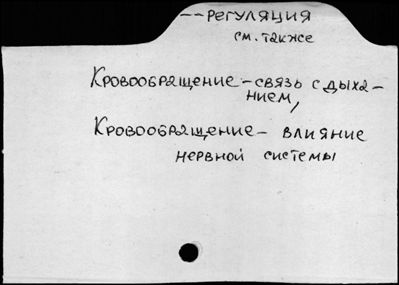 --РЕГУЛЯЦИЯ
см. также
Кровообращение-связь с дыха-
нием,
Кровообращение- влияние
нервной системы